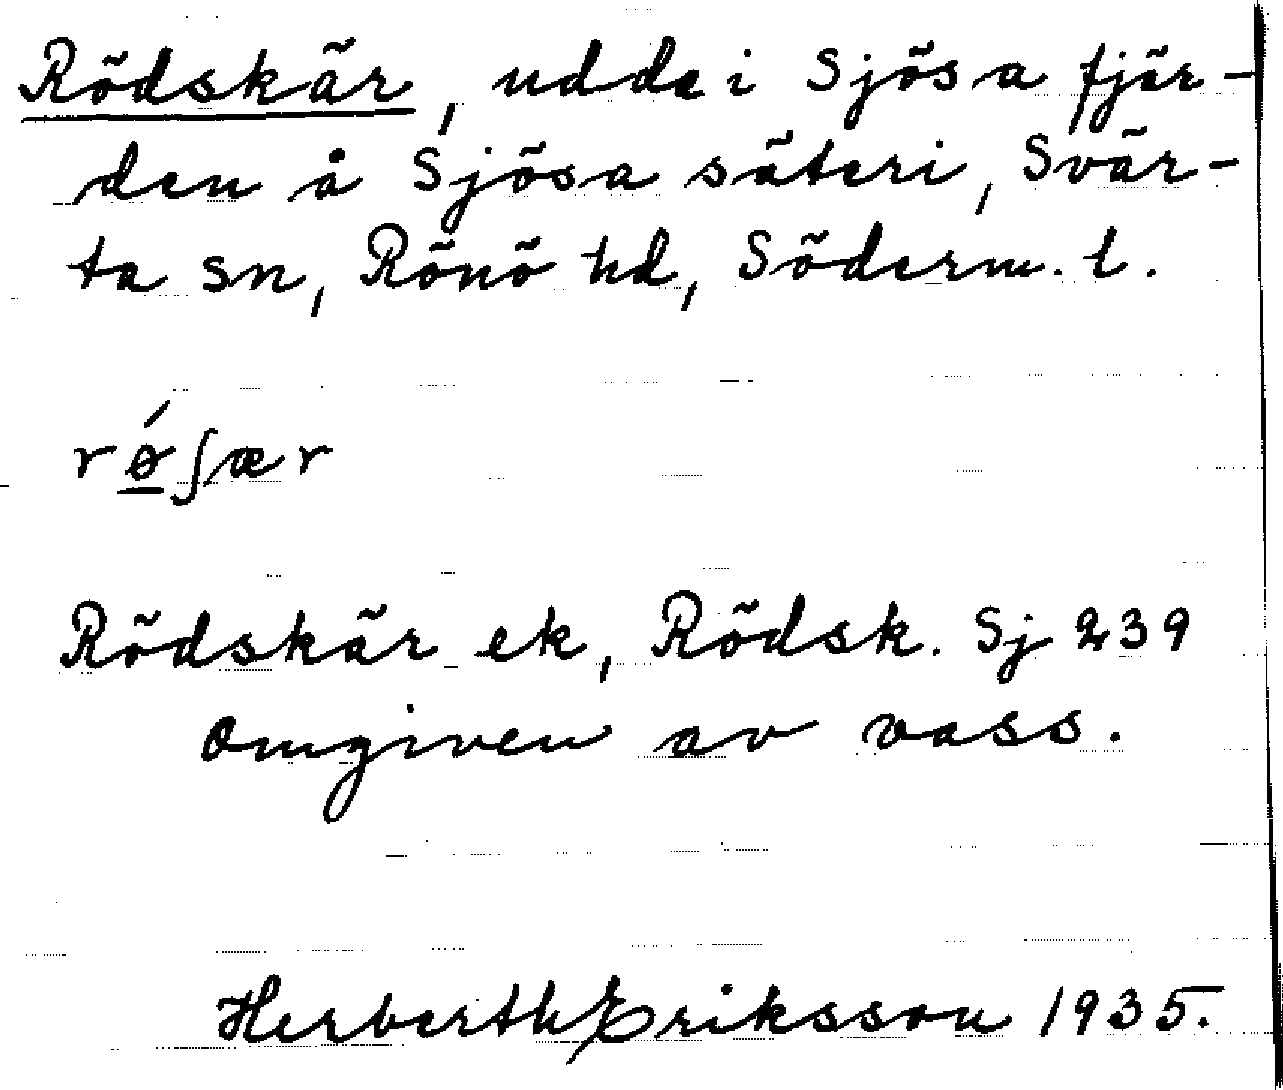 Rödskär, udde i Sjösa fjär-
den å Sjösa säteri, Svär-
ta sn, Rönö hd, Söderm. l.
rǿ̲ʃær
Rödskär ek, Rödsk. Sj 239
Omgiven av vass.
Herberth Eriksson 1935.